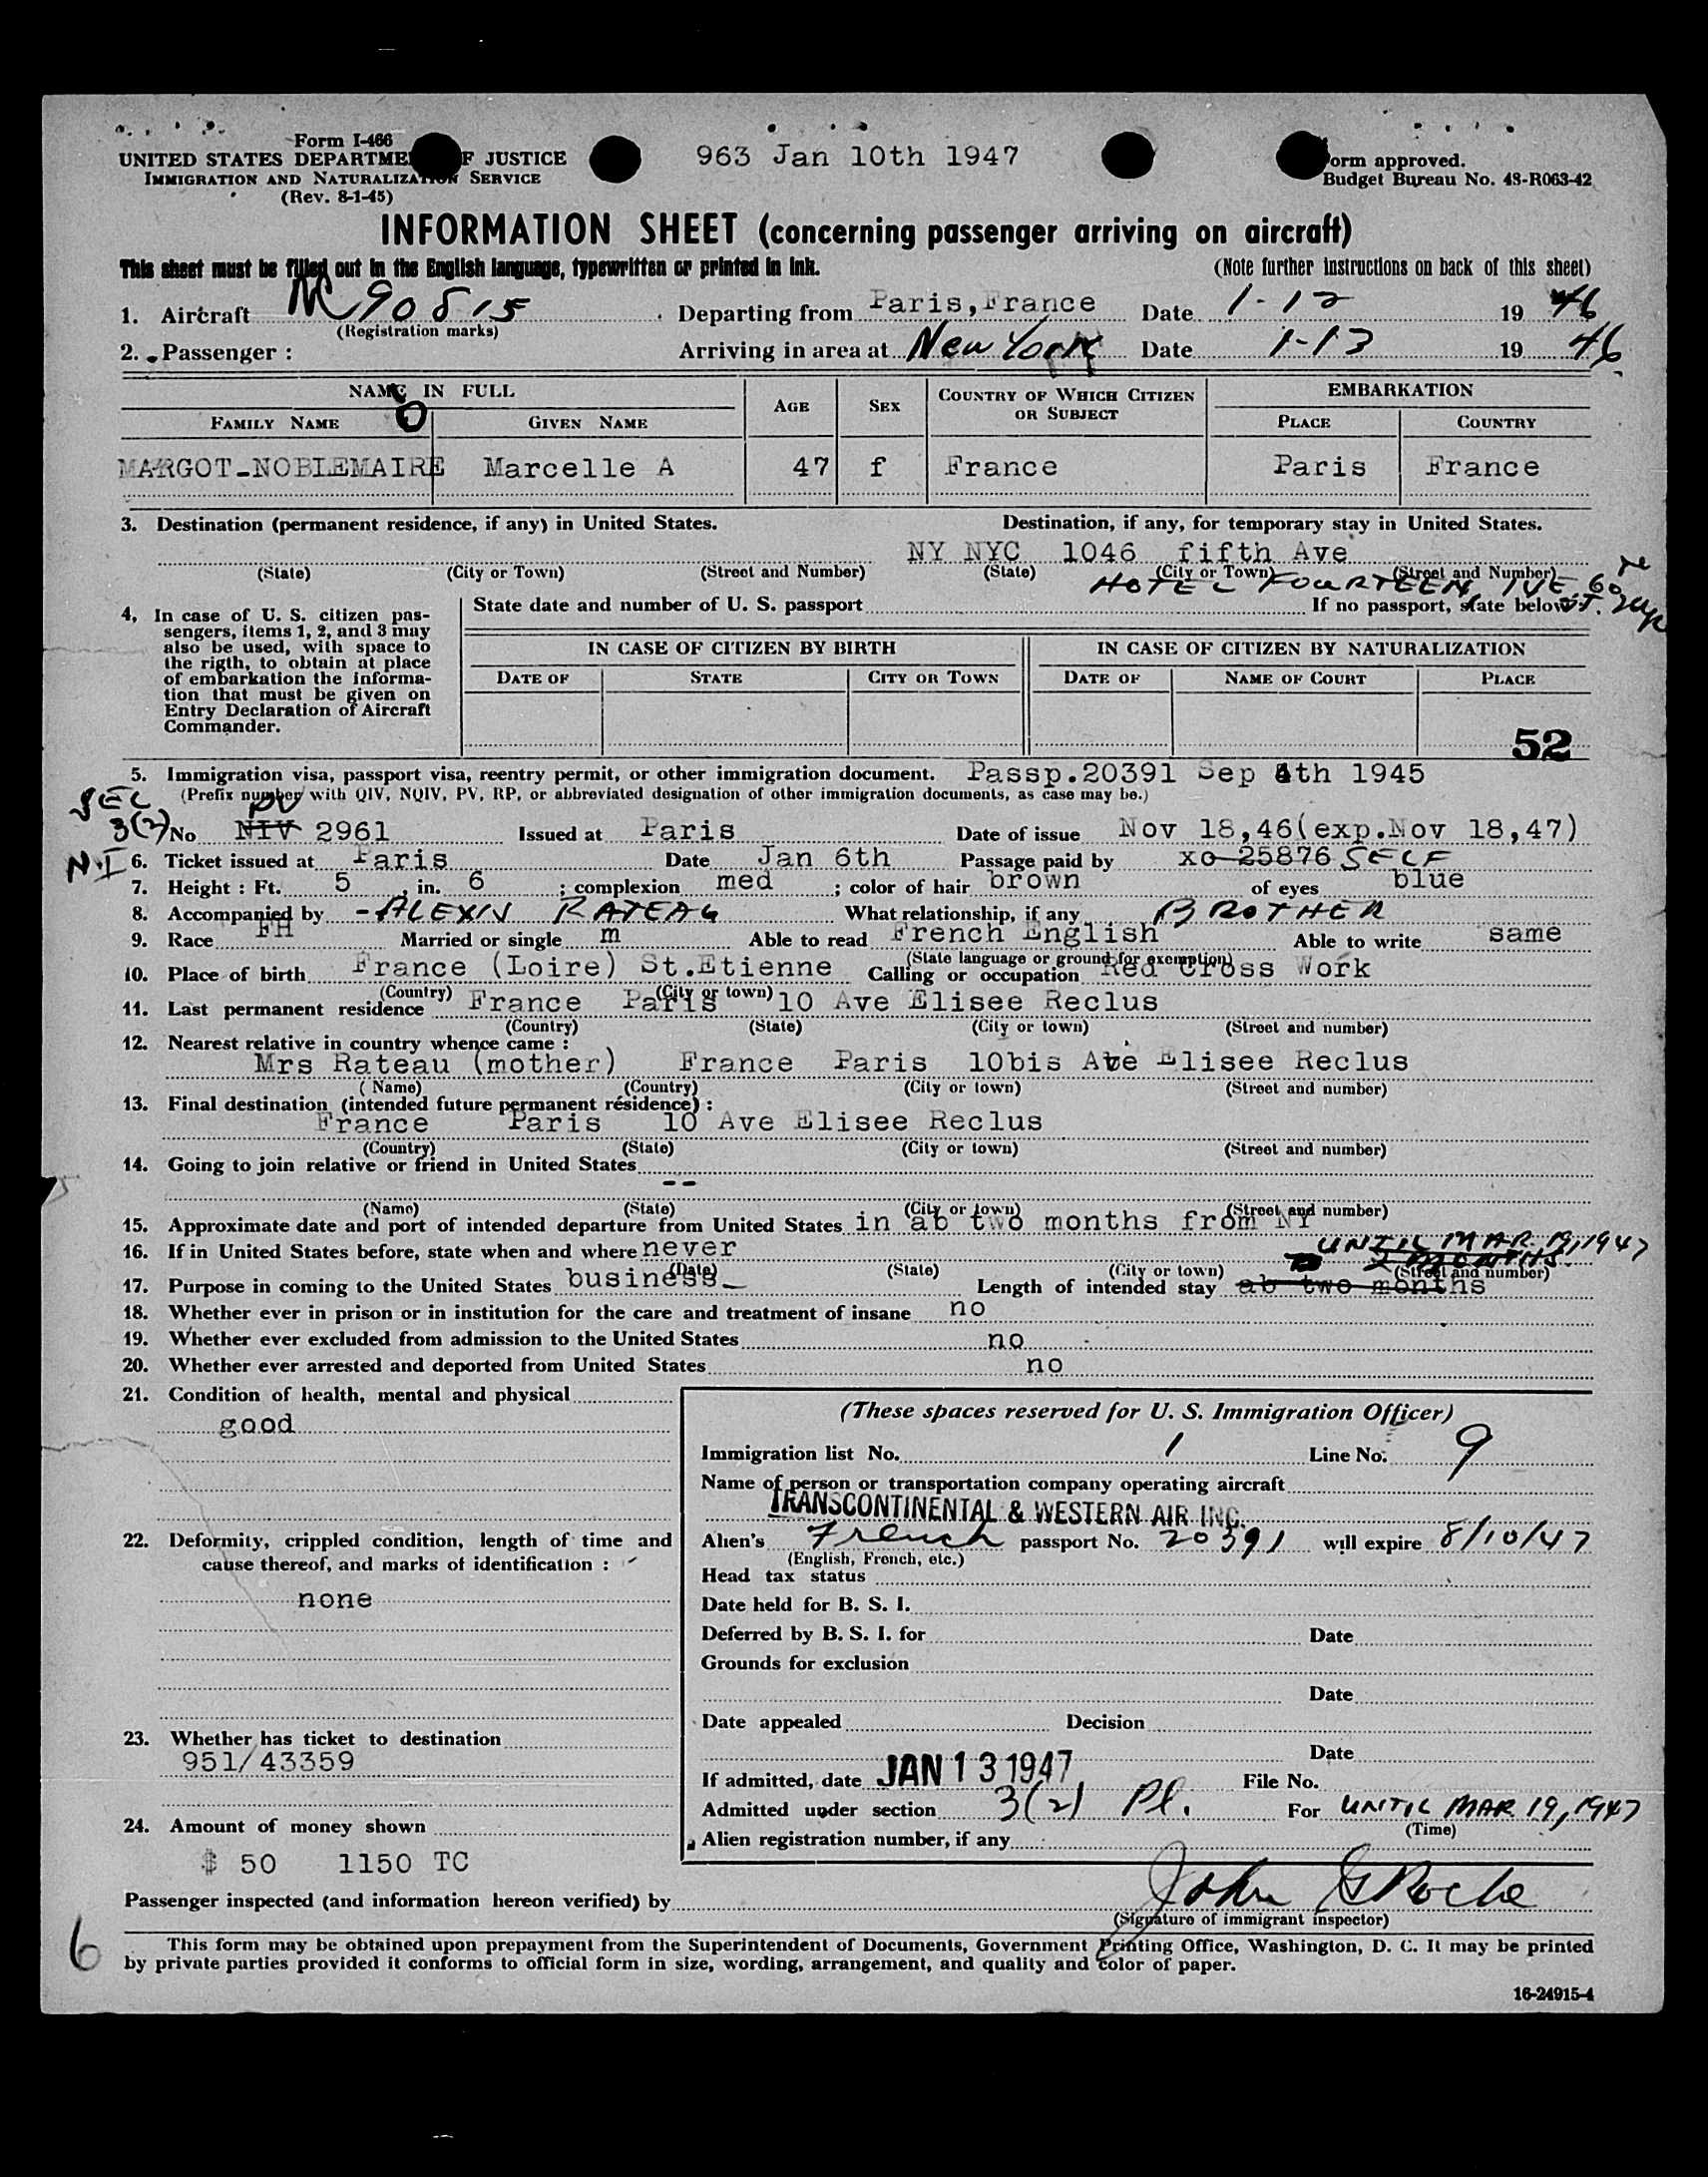 Form I-466
UNITED STATES DEPARTME F JUSTICE
IMMIGRATION AND NATURALIZATION SERVICE
(Rev. 8-1-45)
963 Jan 10th 1947
orm approved.
Budget Bureau No. 43-R063-42
INFORMATION SHEET (concerning passenger arriving on aircraft)
This sheet must be filled out in the English language, typewritten or printed in ink.
(Note further instructions on back of this sheet)
1. Aircraft NC 90815 Departing from Paris, France Date 1-12 19 46
(Registration marks)
2. Passenger : Arriving in area at New York Date 1-13 19 46
NAME IN FULL
AGE SEX COUNTRY OF WHICH CITIZEN OR SUBJECT EMBARKATION
FAMILY NAME GIVEN NAME PLACE COUNTRY
MARGOT-NOBLEMAIRE Marcelle A 47 f France Paris France
3. Destination (permanent residence, if any) in United States. Destination, if any, for temporary stay in United States.
NY NYC 1046 fifth Ave
(State) (City or Town) (Street and Number) (State) (City or Town) (Street and Number)
HOTEL FOURTEEN 14 E. 60 ST.
4. In case of U. S. citizen pas-
sengers, items 1, 2, and 3 may
also be used, with space to
the rigth, to obtain at place
of embarkation the informa-
tion that must be given on
Entry Declaration of Aircraft
Commander.
State date and number of U. S. passport If no passport, state below
IN CASE OF CITIZEN BY BIRTH IN CASE OF CITIZEN BY NATURALIZATION
DATE OF STATE CITY OR TOWN DATE OF NAME OF COURT PLACE
52
5. Immigration visa, passport visa, reentry permit, or other immigration document. Passp.20391 Sep 4th 1945
(Prefix number with QIV, NQIV, PV, RP, or abbreviated designation of other immigration documents, as case may be.)
SEC
3(2)
PV
No NIV 2961 Issued at Paris Date of issue Nov 18,46(exp.Nov 18,47)
N.I
6. Ticket issued at Paris Date Jan 6th Passage paid by xo 25876 SELF
7. Height : Ft. 5 , in. 6 ; complexion med ; color of hair brown of eyes blue
8. Accompanied by - ALEXIS RATEAU What relationship, if any BROTHER
9. Race FH Married or single m Able to read French English Able to write same
(State language or ground for exemption)
10. Place of birth France (Loire) St.Etienne Calling or occupation Red Cross Work
(Country) (City or town)
11. Last permanent residence France Paris 10 Ave Elisee Reclus
(Country) (State) (City or town) (Street and number)
12. Nearest relative in country whence came :
Mrs Rateau (mother) France Paris 10bis Ave Elisee Reclus
(Name) (Country) (City or town) (Street and number)
13. Final destination (intended future permanent résidence) :
France Paris 10 Ave Elisee Reclus
(Country) (State) (City or town) (Street and number)
14. Going to join relative or friend in United States
--
(Name) (State) (City or town) (Street and number)
15. Approximate date and port of intended departure from United States in ab two months from NY
16. If in United States before, state when and where never
UNTIL MAR. 19, 1947
2 MONTHS.
(Date) (State) (City or town) (Street and number)
17. Purpose in coming to the United States business Length of intended stay ab two months
18. Whether ever in prison or in institution for the care and treatment of insane no
19. Whether ever excluded from admission to the United States no
20. Whether ever arrested and deported from United States no
21. Condition of health, mental and physical
good
22. Deformity, crippled condition, length of time and
cause thereof, and marks of identification :
none
23. Whether has ticket to destination
951/43359
24. Amount of money shown
$ 50 1150 TC
(These spaces reserved for U. S. Immigration Officer)
Immigration list No. 1 Line No. 9
Name of person or transportation company operating aircraft
TRANSCONTINENTAL & WESTERN AIR INC.
Alien's French passport No. 20391 will expire 8/10/47
(English, French, etc.)
Head tax status
Date held for B. S. I.
Deferred by B. S. I. for Date
Grounds for exclusion
Date
Date appealed Decision
Date
If admitted, date JAN 13 1947 File No.
Admitted under section 3(2) Pl. For UNTIL MAR 19, 1947
(Time)
Alien registration number, if any
Passenger inspected (and information hereon verified) by John G Roche
(Signature of immigrant inspector)
6
This form may be obtained upon prepayment from the Superintendent of Documents, Government Printing Office, Washington, D. C. It may be printed
by private parties provided it conforms to official form in size, wording, arrangement, and quality and color of paper.
16-24915-4